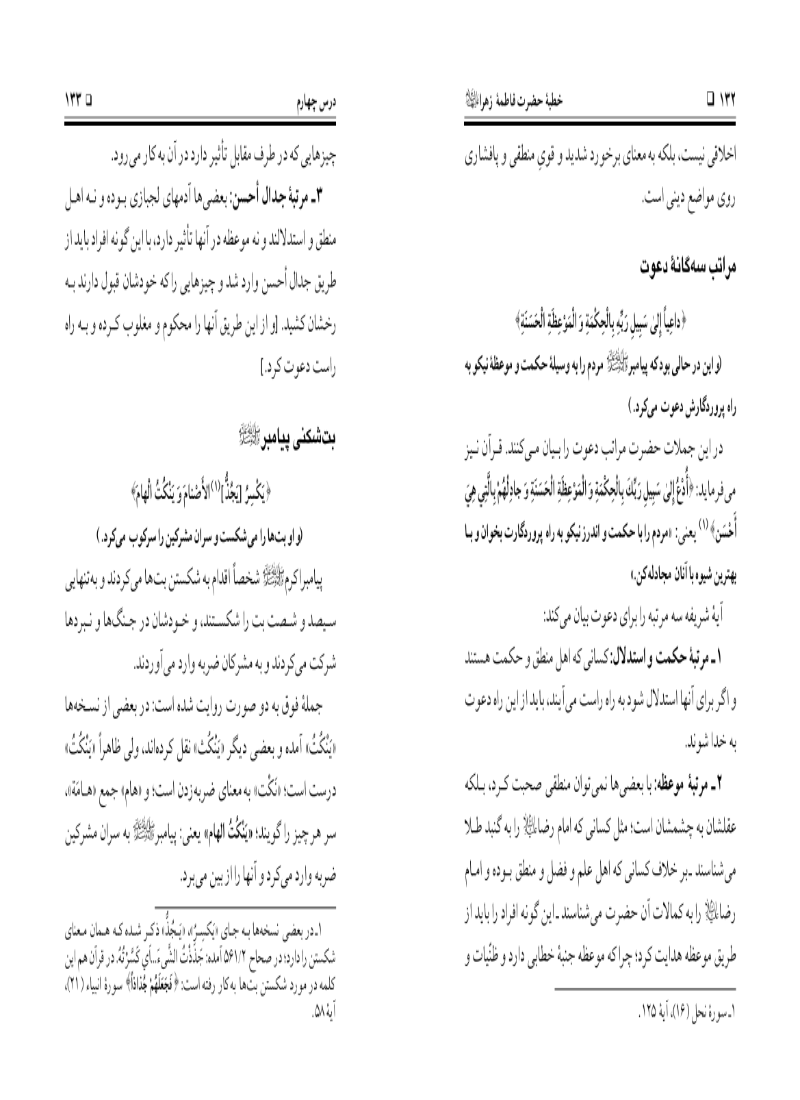 ۱۳۲ □ خطبهٔ حضرت فاطمهٔ زهرا ﷷ
اخلاقی نیست، بلکه به معنای برخورد شدید و قویِ منطقی و پافشاری
روی مواضع دینی است.
مراتب سه‌گانهٔ دعوت
﴿داعِیاً إِلىٰ سَبِیلِ رَبِّهِ بِالْحِکْمَةِ وَ الْمَوْعِظَةِ الْحَسَنَةِ﴾
(و این در حالی بود که پیامبر ﷺ مردم را به وسیلهٔ حکمت و موعظهٔ نیکو به
راه پروردگارش دعوت می‌کرد.)
در این جملات حضرت مراتب دعوت را بیان می‌کنند. قرآن نیز
می‌فرماید: ﴿أُدْعُ إِلىٰ سَبِیلِ رَبِّكَ بِالْحِکْمَةِ وَ الْمَوْعِظَةِ الْحَسَنَةِ وَ جادِلْهُمْ بِالَّتِي هِيَ
أَحْسَن﴾(۱) یعنی: «مردم را با حکمت و اندرز نیکو به راه پروردگارت بخوان و با
بهترین شیوه با آنان مجادله کن.»
آیهٔ شریفه سه مرتبه را برای دعوت بیان می‌کند:
۱ـ مرتبهٔ حکمت و استدلال: کسانی که اهل منطق و حکمت هستند
و اگر برای آنها استدلال شود به راه راست می‌آیند، باید از این راه دعوت
به خدا شوند.
۲ـ مرتبهٔ موعظه: با بعضی‌ها نمی‌توان منطقی صحبت کرد، بلکه
عقلشان به چشمشان است؛ مثل کسانی که امام رضا را به گنبد طلا
می‌شناسند ـ بر خلاف کسانی که اهل علم و فضل و منطق بوده و امام
رضا را به کمالات آن حضرت می‌شناسند ـ این گونه افراد را باید از
طریق موعظه هدایت کرد؛ چراکه موعظه جنبهٔ خطابی دارد و ظنّیات و
۱ـ سورهٔ نحل (۱۶)، آیهٔ ۱۲۵.
درس چهارم □ ۱۳۳
چیزهایی که در طرف مقابل تأثیر دارد در آن به کار می‌رود.
۳ـ مرتبهٔ جدال أحسن: بعضی‌ها آدمهای لجبازی بوده و نه اهل
منطق و استدلالند و نه موعظه در آنها تأثیر دارد، با این گونه افراد باید از
طریق جدال أحسن وارد شد و چیزهایی را که خودشان قبول دارند به
رخشان کشید. [و از این طریق آنها را محکوم و مغلوب کرده و به راه
راست دعوت کرد.]
بت‌شکنی پیامبر ﷺ
﴿یَکْسِرُ [یَجُذُّ](۱) الأَصْنامَ وَ یَنْکُتُ الْهامَ﴾
(و او بت‌ها را می‌شکست و سران مشرکین را سرکوب می‌کرد.)
پیامبر اکرم ﷺ شخصاً اقدام به شکستن بت‌ها می‌کردند و به‌تنهایی
سیصد و شصت بت را شکستند، و خودشان در جنگ‌ها و نبردها
شرکت می‌کردند و به مشرکان ضربه وارد می‌آوردند.
جملهٔ فوق به دو صورت روایت شده است: در بعضی از نسخه‌ها
«یَنْکُتُ» آمده و بعضی دیگر «یَنْکُث» نقل کرده‌اند، ولی ظاهراً «یَنْکُتُ»
درست است؛ «نَکْت» به معنای ضربه‌زدن است؛ و «هام» جمع «هامَة»،
سر هر چیز را گویند؛ «یَنْکُتُ الهام» یعنی: پیامبر ﷺ به سران مشرکین
ضربه وارد می‌کرد و آنها را از بین می‌برد.
۱ـ در بعضی نسخه‌ها به جای «یَکسِرُ»، «یَجُذُّ» ذکر شده که همان معنای
شکستن را دارد؛ در صحاح ۵۶۱/۲ آمده: جَذَذْتُ الشَّیءَ...أي کَسَّرْتُهُ. در قرآن هم این
کلمه در مورد شکستن بت‌ها به‌کار رفته است: ﴿فَجَعَلَهُمْ جُذاذاً﴾ سورهٔ انبیاء (۲۱)،
آیهٔ ۵۸.